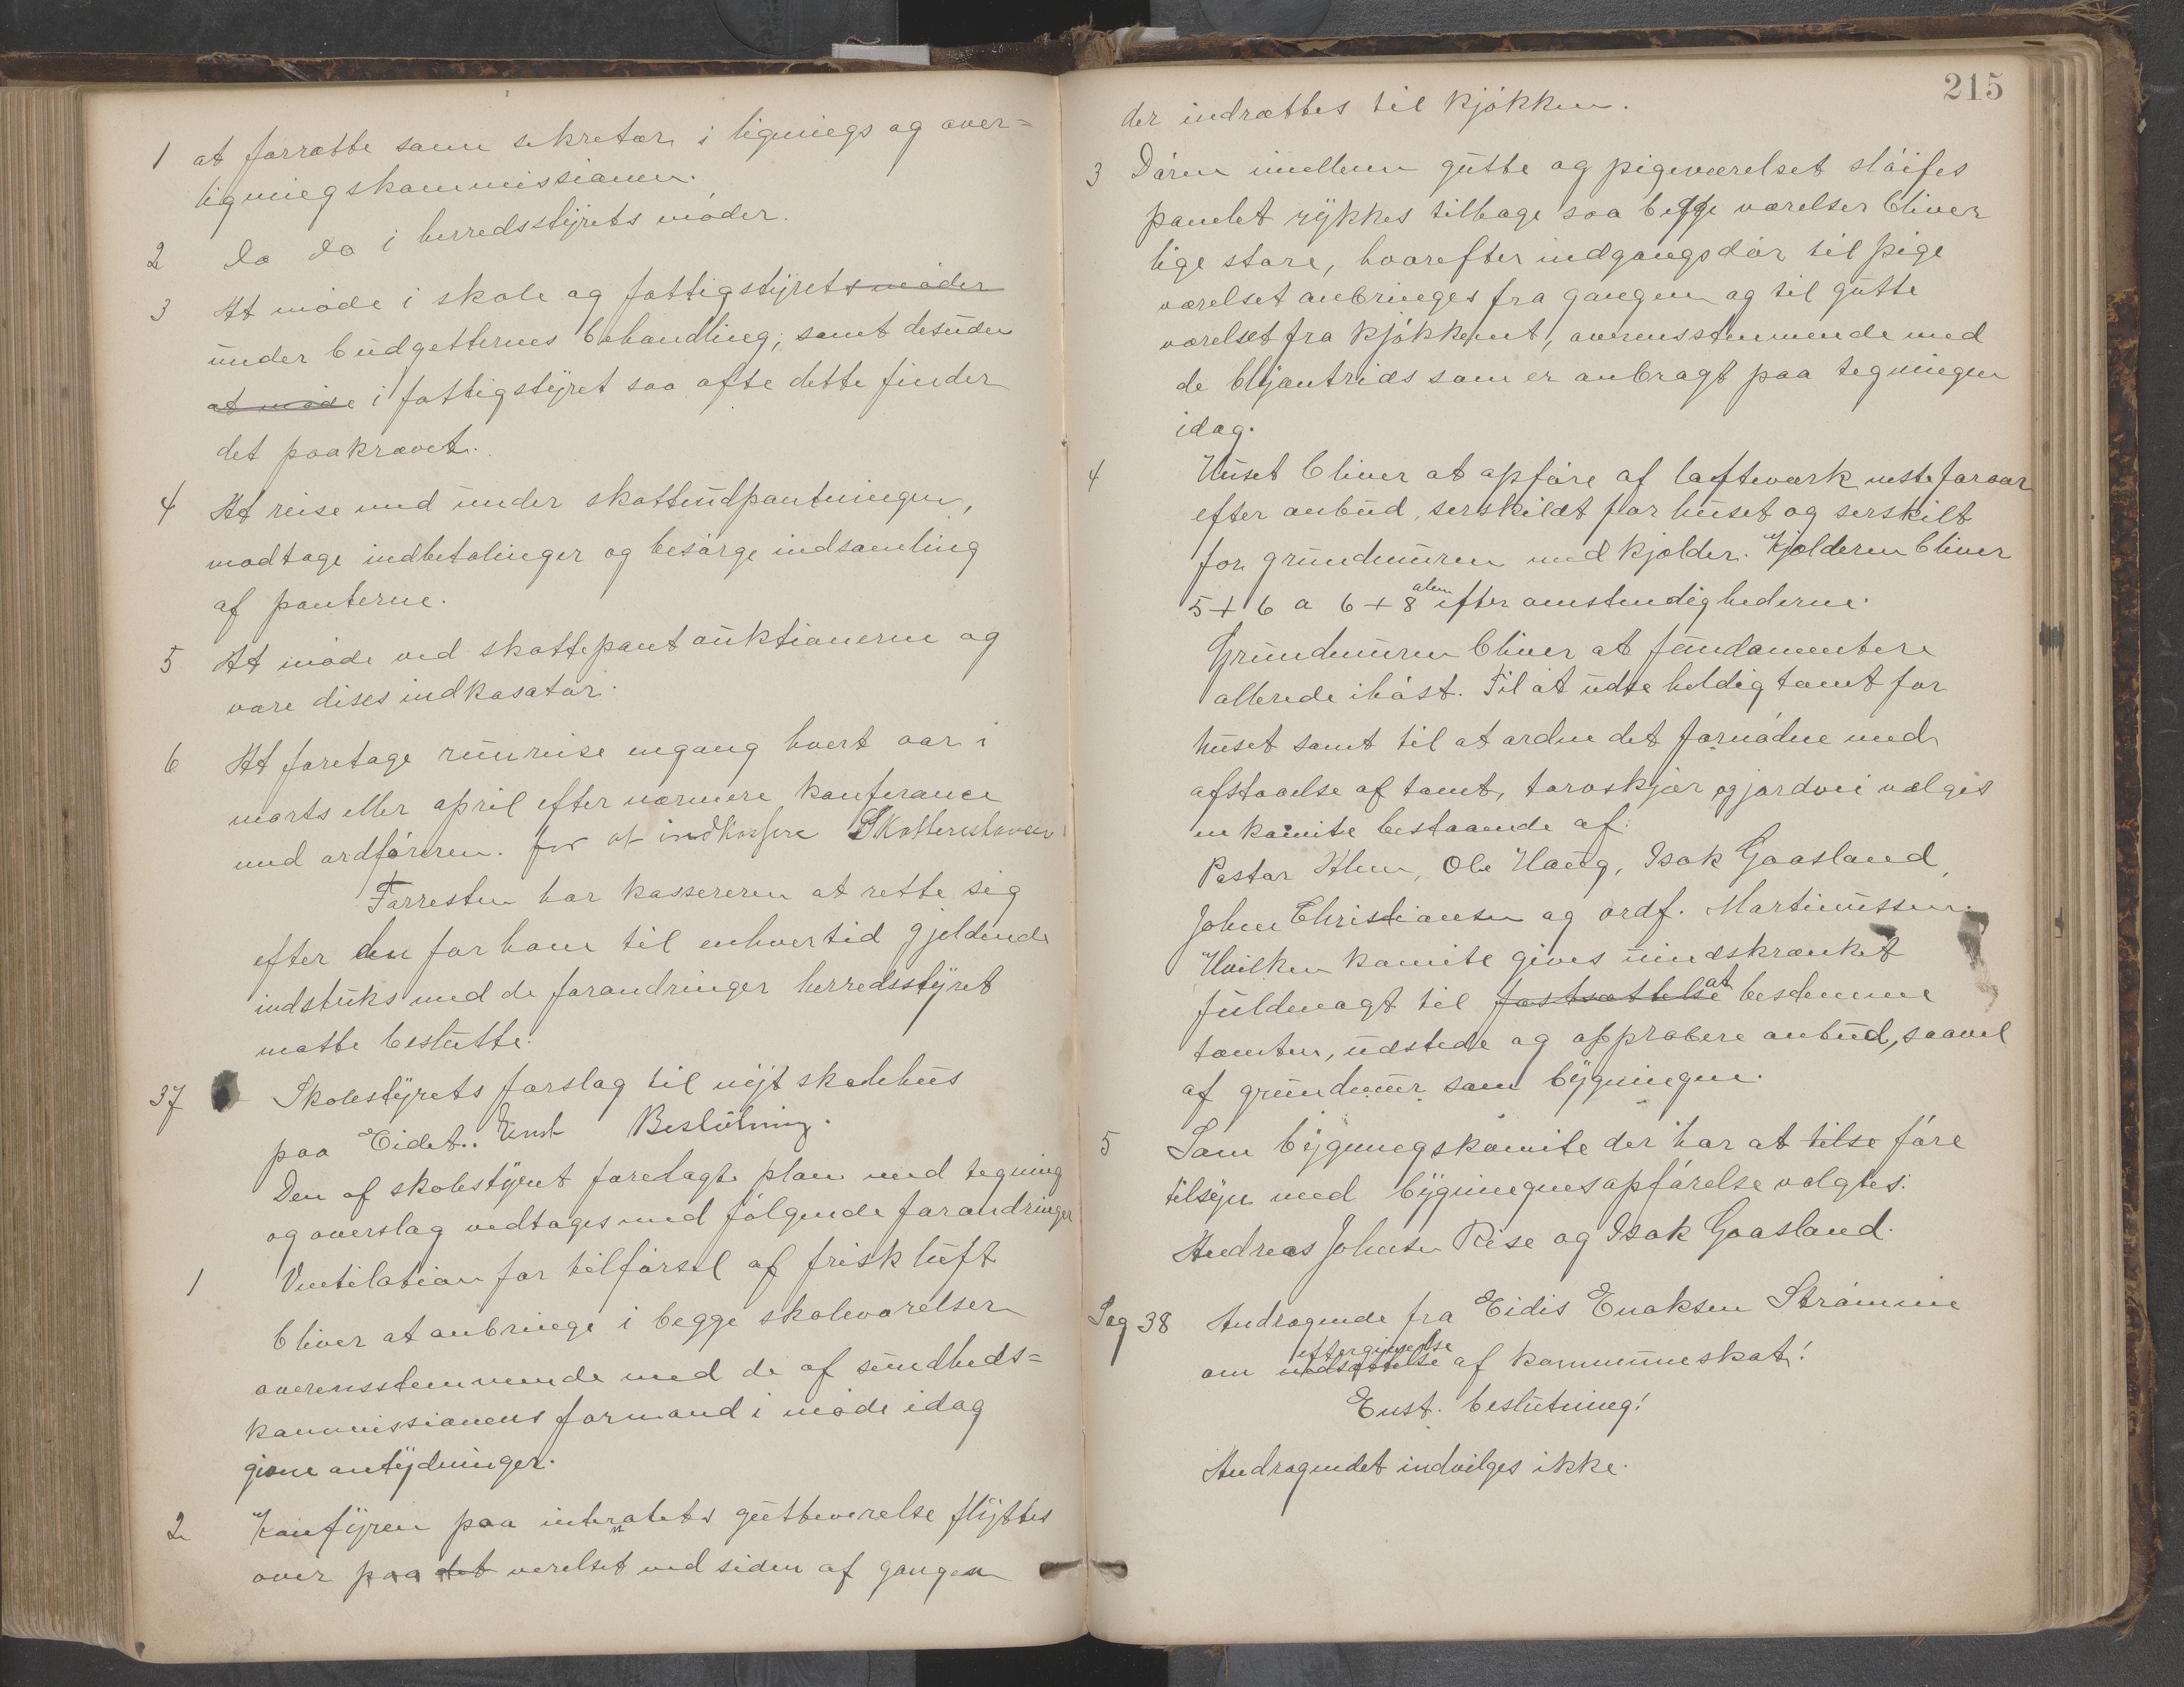 1 at forrætte som sekretær i ligniegs og over-
ligniegskommissionen.
2 Do do i herredsstyrets møder.
3 At møde i skole og fattigstyrets møder
under budgetternes behandling; samt desuden
at møde i fattigstyret saa ofte dette finder
det paakrævet.
4 At reise med under skatteudpantningen,
modtage indbetalinger og besørge indsamling
af panterne.
5 At møde ved skattepantauktionerne og
være dises indkasator.
6 At foretage runreise engang hvert aar i
marts eller april efter nærmere konferance
med ordføreren. for at indkassere Skatterestancen
Forresten har kassereren at rette sig
efter den for ham til enhver tid gjeldende
instuks med de forandringer herredsstyret
maatte beslutte.
37 Skolestyrets forslag til nyt skolehus
paa Eidet. Enst Beslutning.
Den af skolestyret forelagte plan med tegning
og overslag vedtages med følgende forandringer
1 Ventilation for tilførsel af frisk luft
bliver at anbringe i begge skoleværelser
overensstemmende med de af sundheds-
kommissionens formand i møde idag
givne antydninger.
2 Komfyren paa internatets gutteværelse flyttes
over paa det værelset ved siden af gangen
215
der indrættes til kjøkken.
3 Døren imellem gutte og pigeværelset sløifes
panelet rykkes tilbage saa begge værelser bliver
lige store, hvorefter indgangsdør til pige
værelset anbringes fra gangen og til gutte
værelset fra kjøkkenet, overensstemmende med
de blyantrids som er anbragt paa tegningen
idag.
4 Huset bliver at opføre af lafteværk neste foraar
efter anbud, serskildt for huset og serskilt
for grundmuren med kjælder. Kjælderen bliver
5 + 6 a 6 + 8 alen efter omstendighederne.
Grundmuren bliver at fundamentere
allerede ihøst. Til at udse heldig tomt for
huset samt til at ordne det fornødne med
afstaaelse af tomt, torvskjær og jordvei vælges
en komite bestaaende af:
Pastor Alm, Ole Haug, Isak Gaasland,
Johan Christiansen og ordf. Martinussen.
Hvilken komite gives uindskrænket
fuldmagt til fastsættelse at bestemme
tomten, udstede og approbere anbud, saavel
af grundmur som bygningen.
5 Som bygningskomite der har at tilse føre
tilsyn med bygningens opførelse valgtes:
Andreas Johnsen Rise og Isak Gaasland.
Sag 38 Andragende fra Eidis Enoksen Strømme
om nedsættelse eftergivelse af kommuneskat!
Enst. beslutning!
Andragendet indvilges ikke.